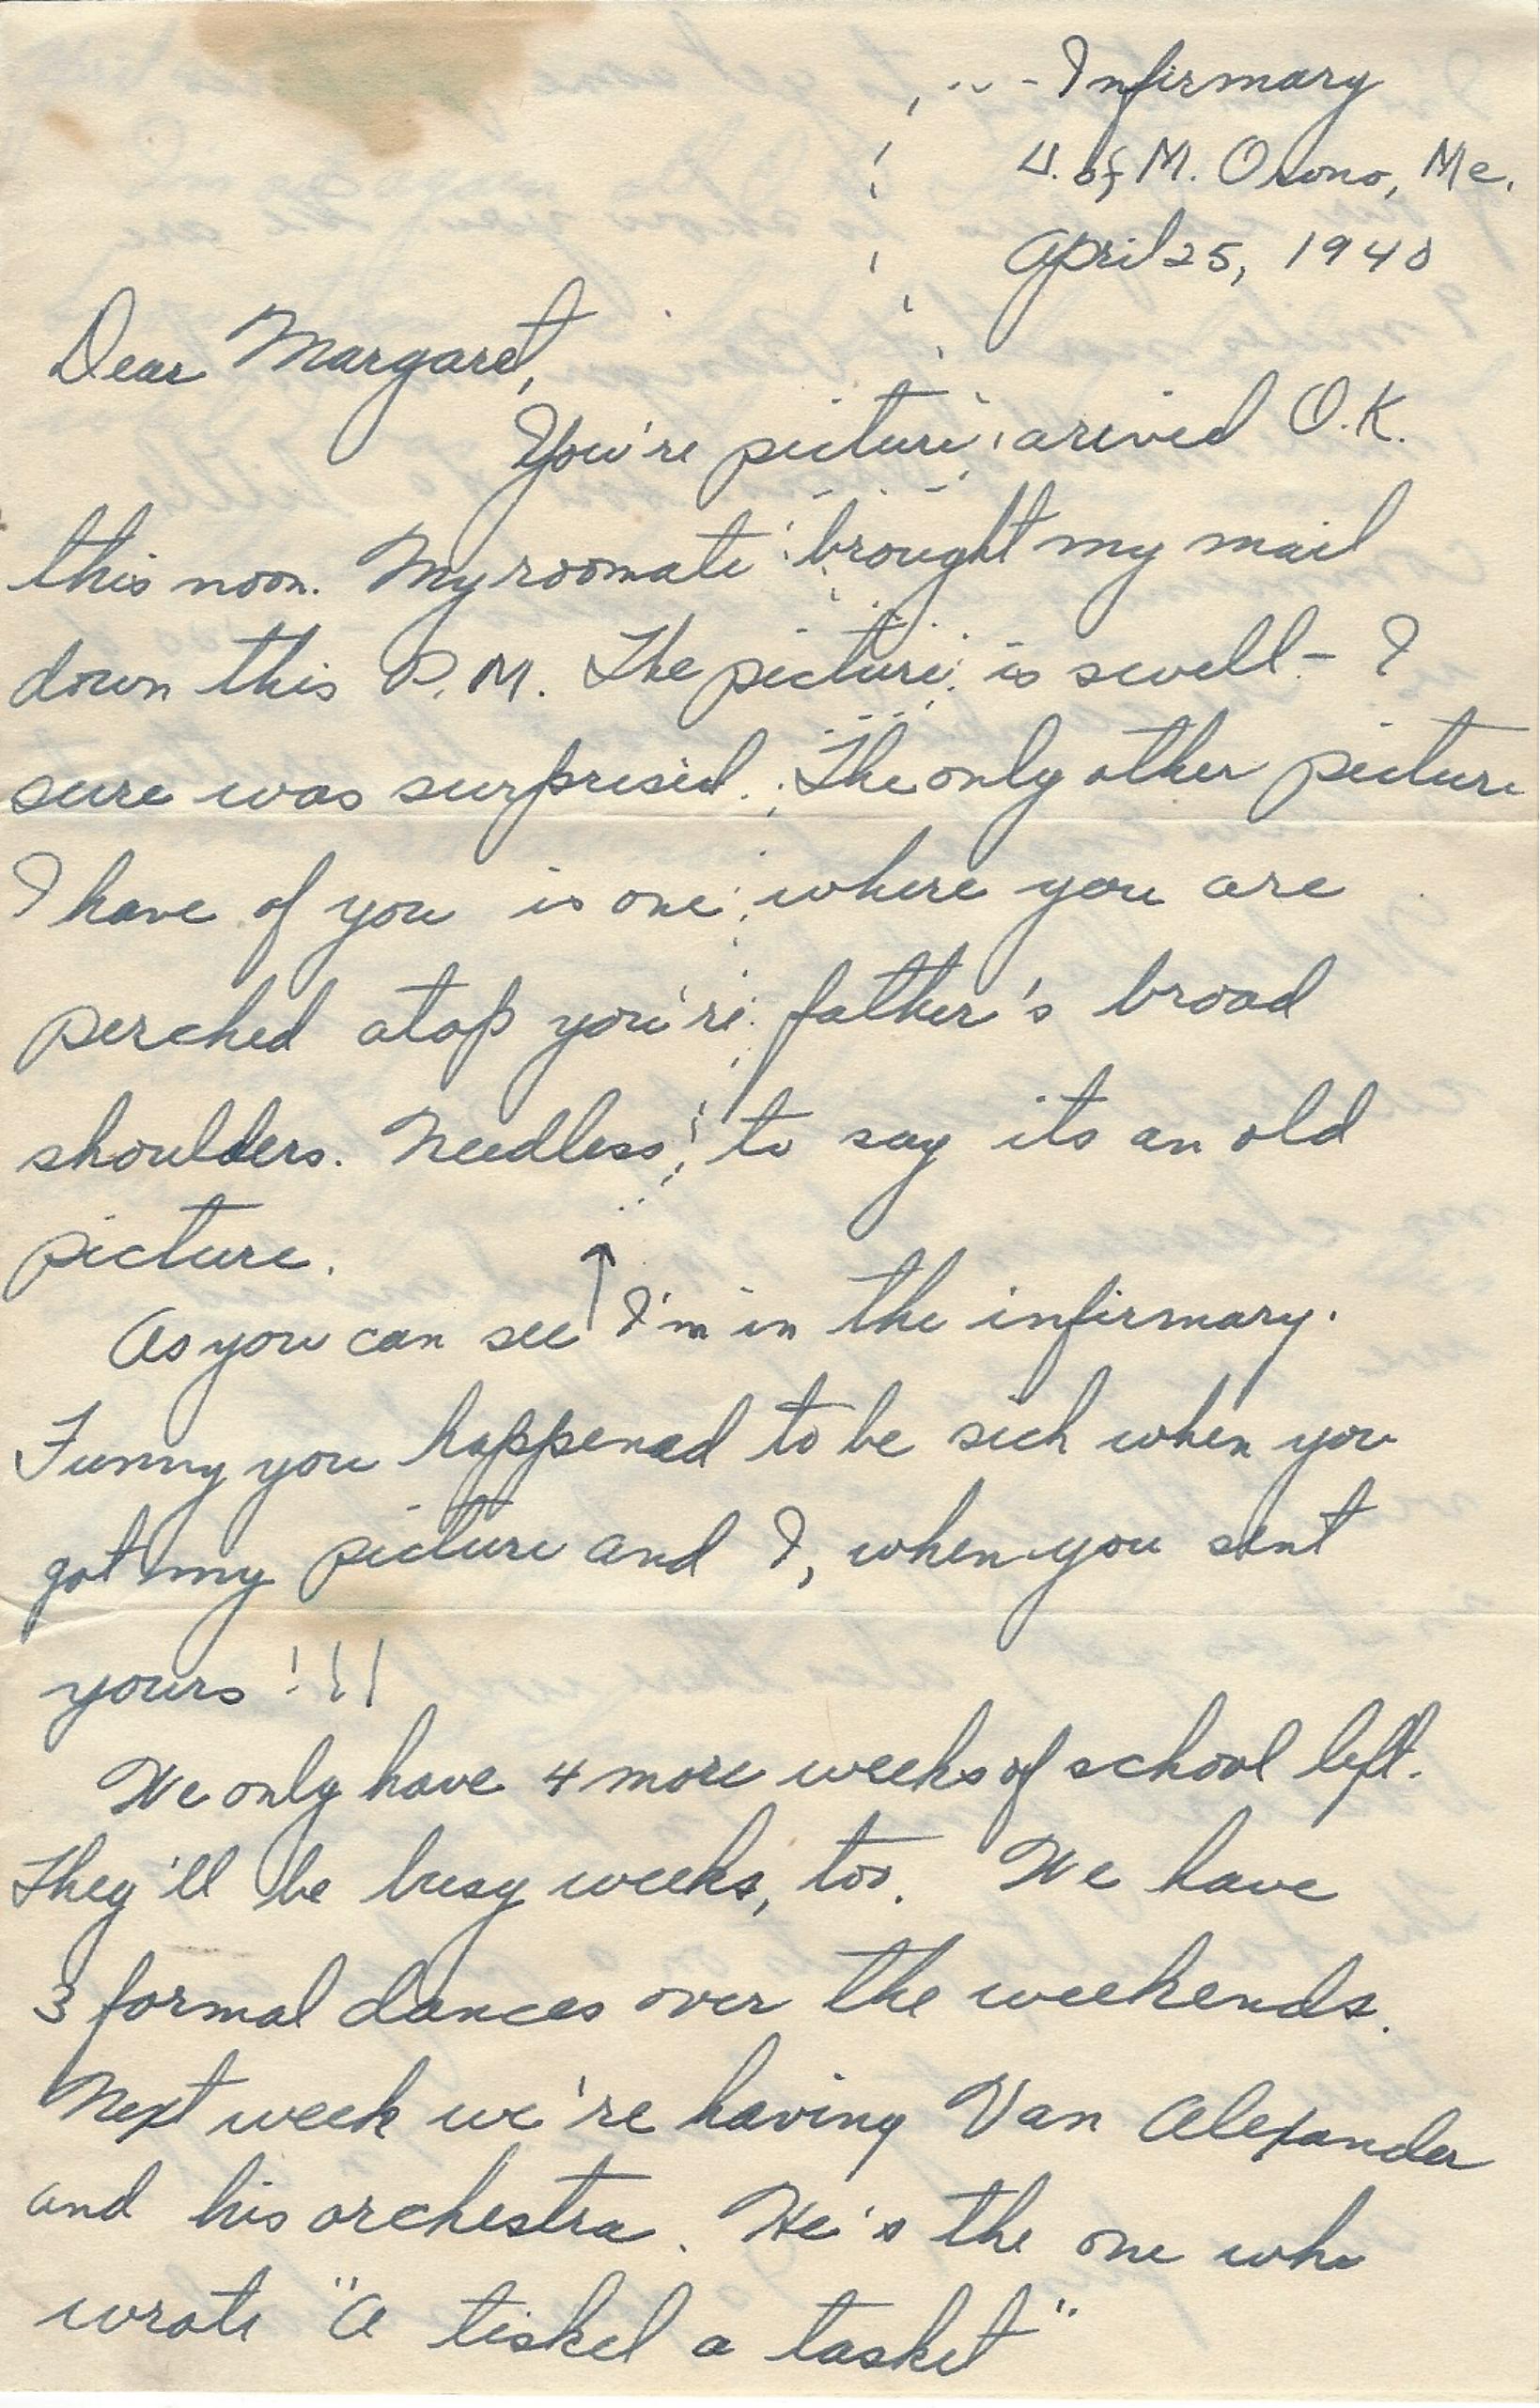 Infirmary
U. of M. Orono, Me.
April 25, 1940
Dear Margaret,
You're picture arived O.K.
this noon. My roomate brought my mail
down this P.M. The picture is swell - I
sure was surprised. The only other picture
I have of you is one where you are
perched atop you're father's broad
shoulders. Needless to say its an old
picture.
As you can see ↑ I'm in the infirmary.
Funny you happened to be sick when you
got my picture and I, when you sent
yours !!!
We only have 4 more weeks of school left.
They'll be busy weeks, too. We have
3 formal dances over the weekends.
Next week we're having Van Alexander
and his orchestra. He's the one who
wrote "A tisket a tasket"